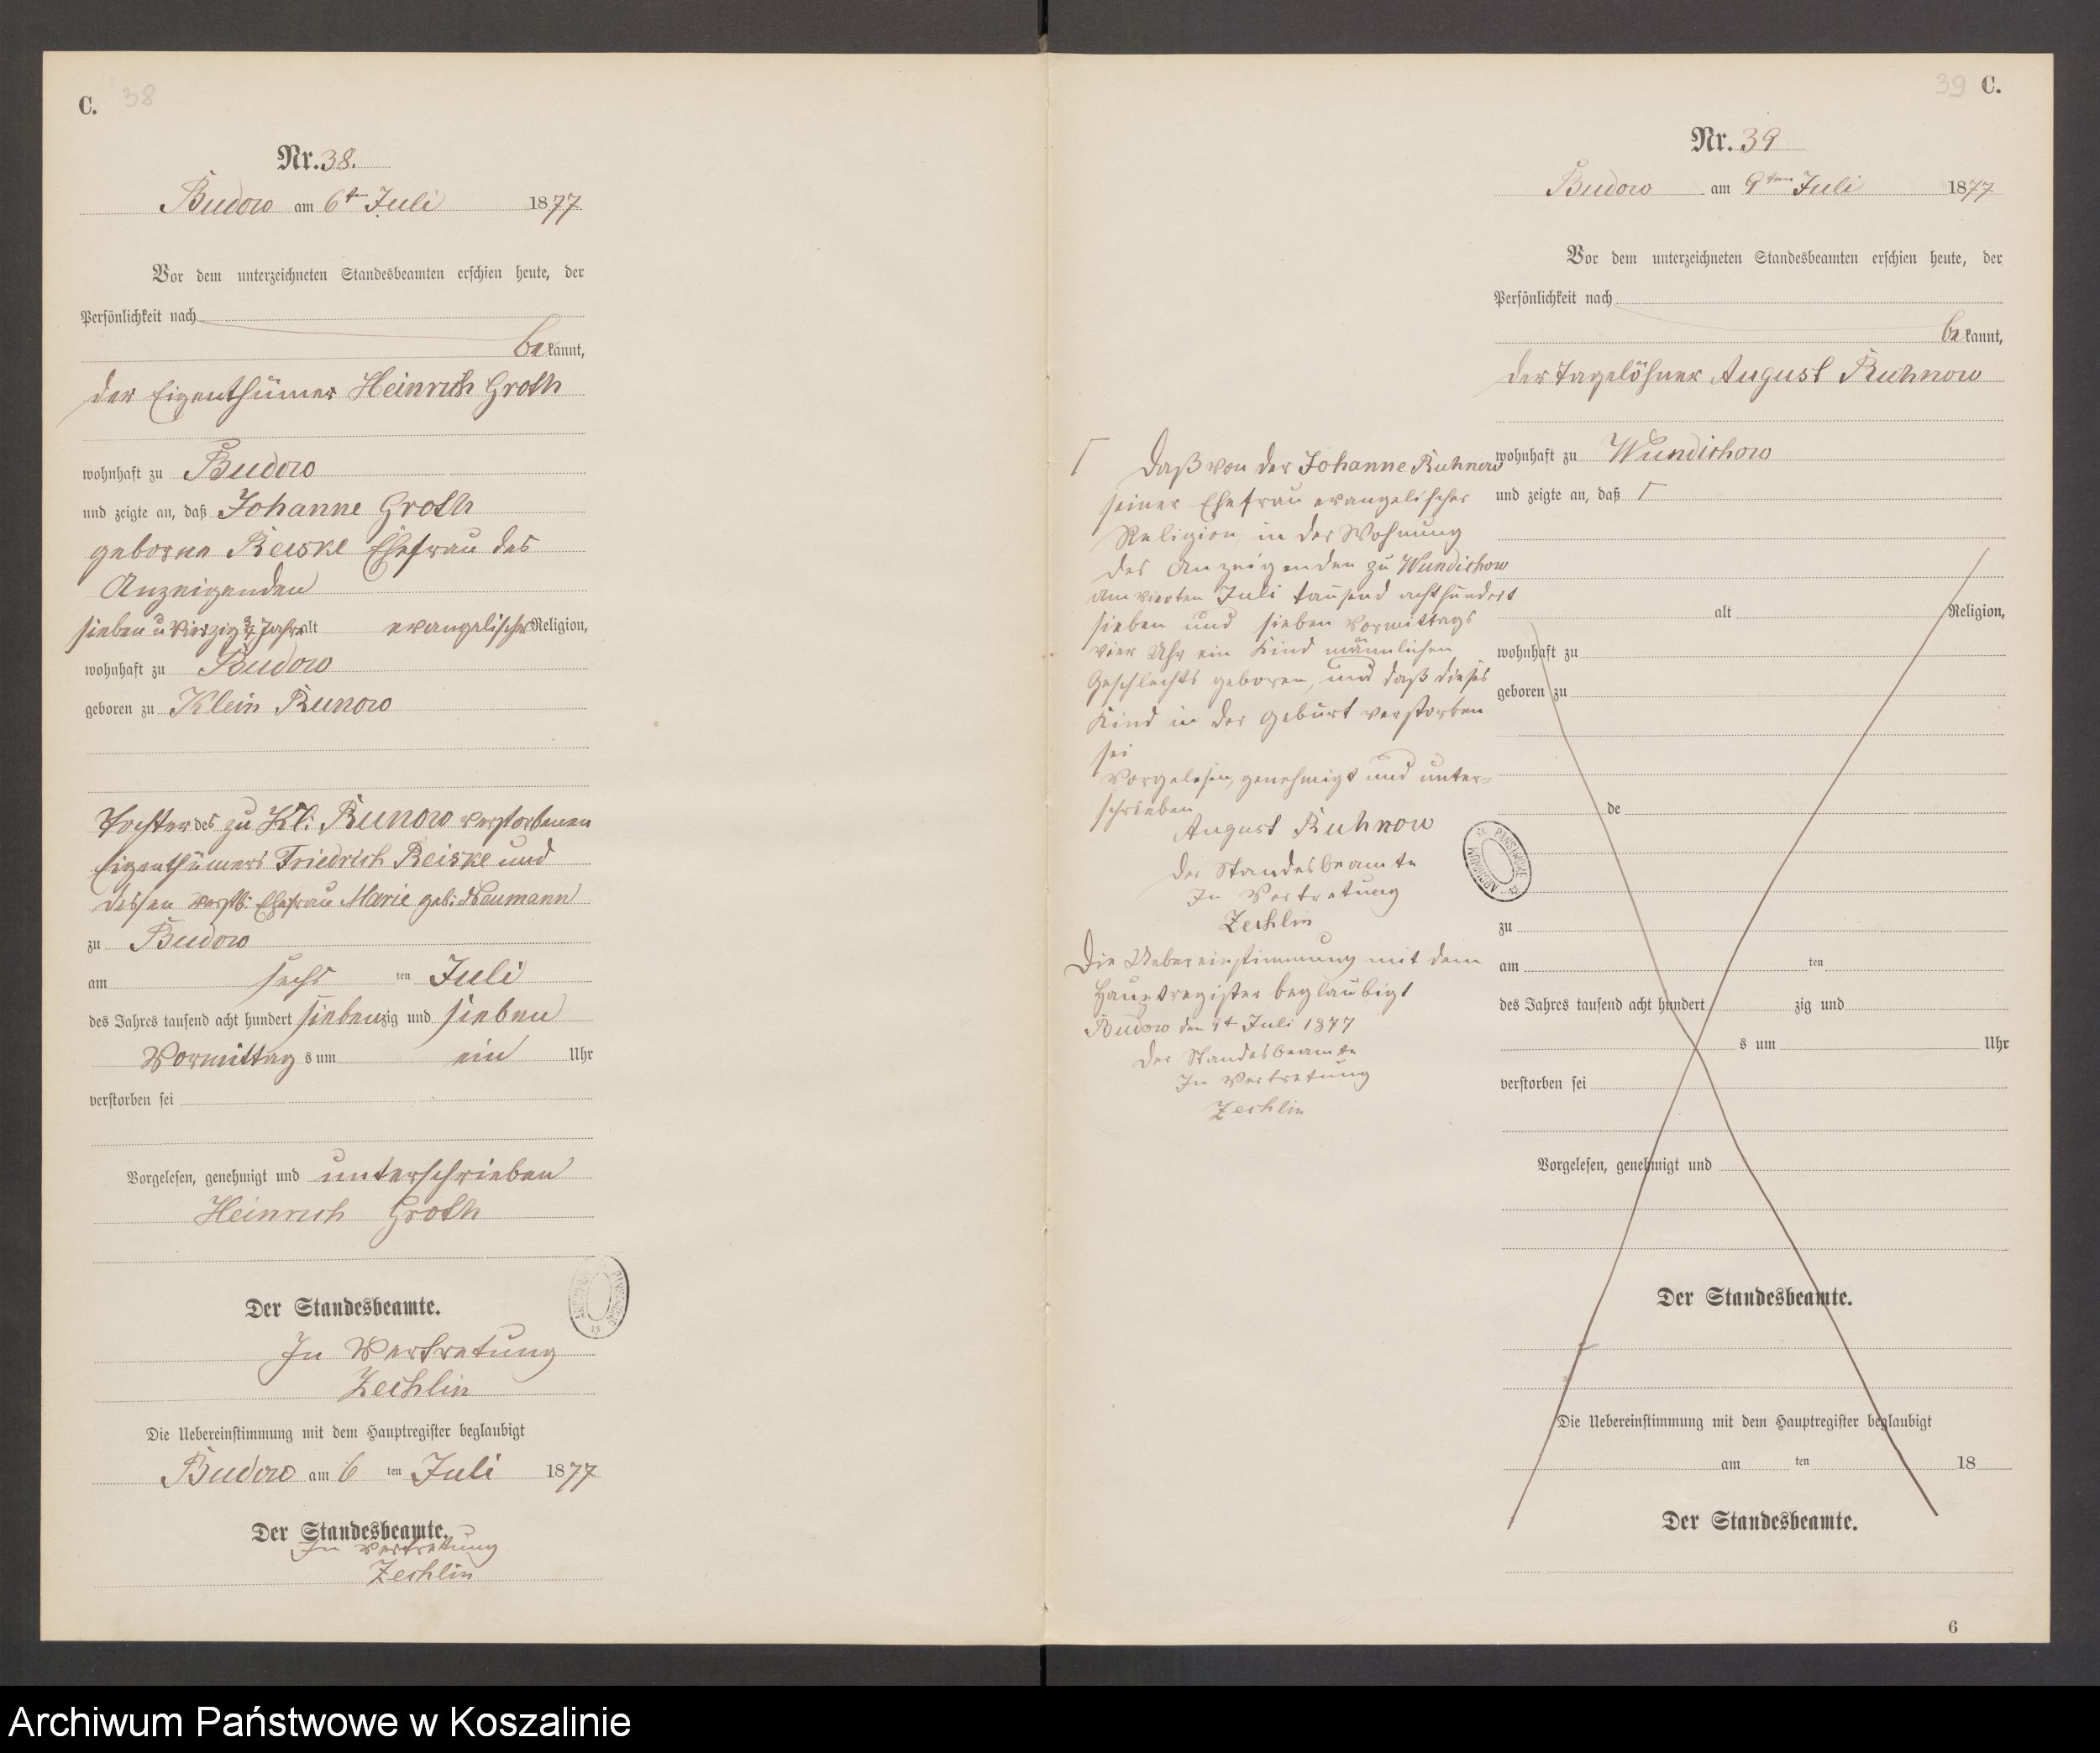 C. 38
Nr. 38.
Budow am 6ten Juli 1877
Vor dem unterzeichneten Standesbeamten erschien heute, der
Persönlichkeit nach
bekannt,
der Eigenthümer Heinrich Groth
wohnhaft zu Budow
und zeigte an, daß Johanne Groth
geborne Reiske Ehefrau des
Anzeigenden
sieben u vierzig Jahr alt evangelischer Religion,
wohnhaft zu Budow
geboren zu Klein Runow
Tochter des zu Kl: Runow verstorbenen
Eigenthümers Friedrich Reiske und
dessen verstb: Ehefrau Marie geb: Naumann
zu Budow
am sechs ten Juli
des Jahres tausend acht hundert siebenzig und sieben
Vormittag s um ein Uhr
verstorben sei
Vorgelesen, genehmigt und unterschrieben
Heinrich Groth
Der Standesbeamte.
In Vertretung
Zechlin
Die Uebereinstimmung mit dem Hauptregister beglaubigt
Budow am 6 ten Juli 1877
Der Standesbeamte.
In Vertretung
Zechlin
39 C.
Nr. 39
Budow am 9ten Juli 1877
Vor dem unterzeichneten Standesbeamten erschien heute, der
Persönlichkeit nach
bekannt,
der Tagelöhner August Ruhnow
wohnhaft zu Wundichow
und zeigte an, daß Γ
Γ Daß von der Johanne Ruhnow
seiner Ehefrau evangelischer
Religion, in der Wohnung
des Anzeigenden zu Wundichow
am vierten Juli tausend achthundert
sieben und sieben Vormittags
vier Uhr ein Kind männlichen
Geschlechts geboren, und daß dieses
Kind in der Geburt verstorben
sei
Vorgelesen, genehmigt und unter-
schrieben
August Ruhnow
Der Standesbeamte
In Vertretung
Zechlin
Die Uebereinstimmung mit dem
Hauptregister beglaubigt
Budow den 9t Juli 1877
Der Standesbeamte
In Vertretung
Zechlin
alt Religion,
wohnhaft zu
geboren zu
de
ARCHIWUM PAŃSTWOWE
zu
am ten
des Jahres tausend acht hundert zig und
s um Uhr
verstorben sei
Vorgelesen, genehmigt und
Der Standesbeamte.
Die Uebereinstimmung mit dem Hauptregister beglaubigt
am ten 18
Der Standesbeamte.
6
Archiwum Państwowe w Koszalinie